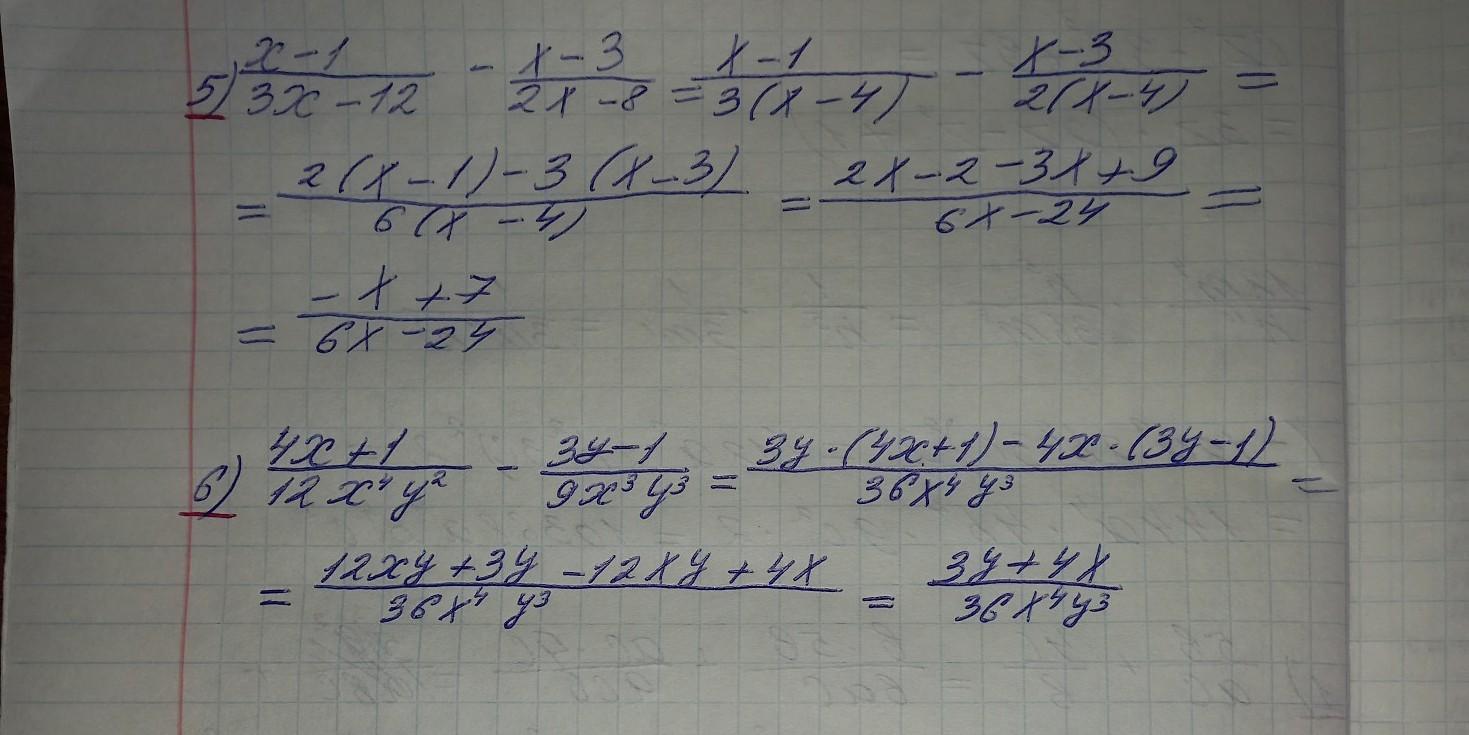 5) (x-1)/(3x-12) - (x-3)/(2x-8) = (x-1)/(3(x-4)) - (x-3)/(2(x-4)) =
= (2(x-1)-3(x-3))/(6(x-4)) = (2x-2-3x+9)/(6x-24) =
= (-x+7)/(6x-24)
6) (4x+1)/(12x⁴y²) - (3y-1)/(9x³y³) = (3y·(4x+1)-4x·(3y-1))/(36x⁴y³) =
= (12xy+3y-12xy+4x)/(36x⁴y³) = (3y+4x)/(36x⁴y³)